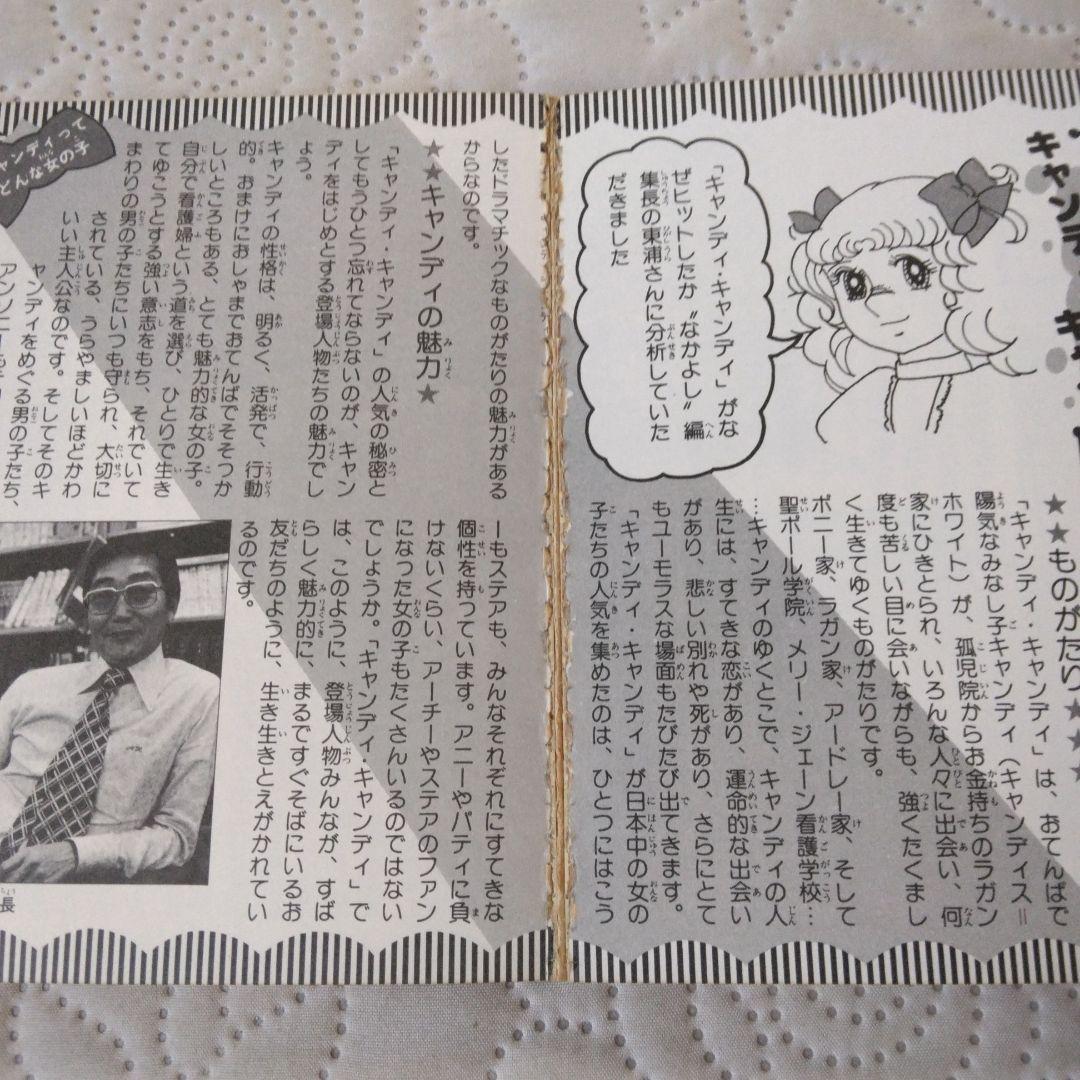 「キャンディ・キャンディ」がな
ぜヒットしたか〝なかよし〟編
集長の東浦さんに分析していた
だきました
★ものがたり★
「キャンディ・キャンディ」は、おてんばで
陽気なみなし子キャンディ(キャンディス=
ホワイト)が、孤児院からお金持ちのラガン
家にひきとられ、いろんな人々に出会い、何
度も苦しい目に会いながらも、強くたくまし
く生きてゆくものがたりです。
ポニー家、ラガン家、アードレー家、そして
聖ポール学院、メリー・ジェーン看護学校…
…キャンディのゆくとこで、キャンディの人
生には、すてきな恋があり、運命的な出会い
があり、悲しい別れや死があり、さらにとて
もユーモラスな場面もたびたび出てきます。
「キャンディ・キャンディ」が日本中の女の
子たちの人気を集めたのは、ひとつにはこう
したドラマチックなものがたりの魅力がある
からなのです。
★キャンディの魅力★
「キャンディ・キャンディ」の人気の秘密と
してもうひとつ忘れてならないのが、キャン
ディをはじめとする登場人物たちの魅力でし
ょう。
キャンディの性格は、明るく、活発で、行動
的。おまけにおしゃまでおてんばでそそっか
しいところもある、とても魅力的な女の子。
自分で看護婦という道を選び、ひとりで生き
てゆこうとする強い意志をもち、それでいて
まわりの男の子たちにいつも守られ、大切に
されている、うらやましいほどかわ
いい主人公なのです。そしてそのキ
ャンディをめぐる男の子たち、
ャンディって
どんな女の子
ーもステアも、みんなそれぞれにすてきな
個性を持っています。アニーやパティに負
けないくらい、アーチーやステアのファン
になった女の子もたくさんいるのではない
でしょうか。「キャンディ・キャンディ」で
は、このように、登場人物みんなが、すば
らしく魅力的に、まるですぐそばにいるお
友だちのように、生き生きとえがかれてい
るのです。
長